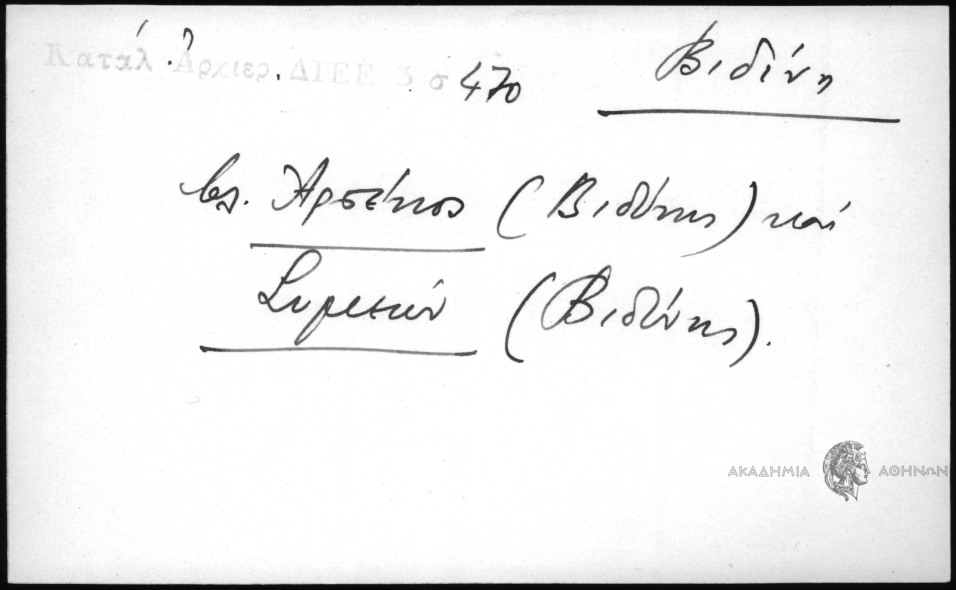 Κατάλ. Ἀρχιερ. ΔΙΕΕ 3 σ 470 Βιδίνη
βλ. Ἀρσένιος (Βιδύνης) καί
Συμεών (Βιδύνης).
ΑΚΑΔΗΜΙΑ ΑΘΗΝΩΝ